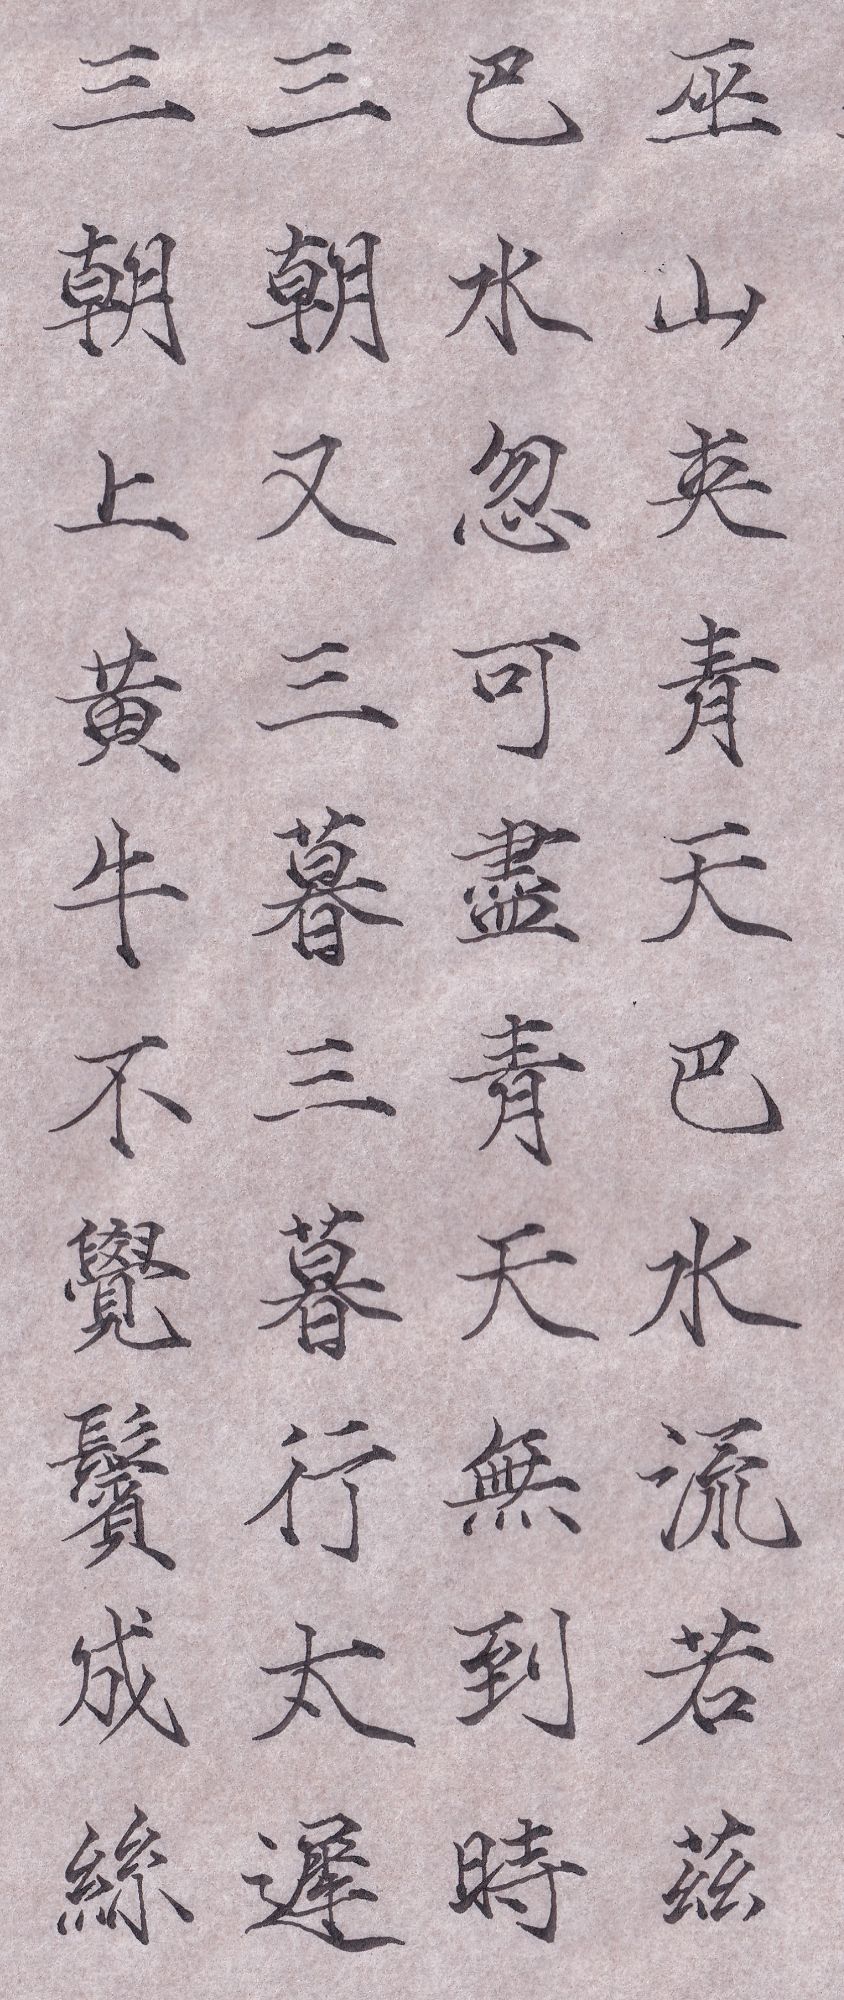 巫山夾青天巴水流若茲
巴水忽可盡青天無到時
三朝又三暮三暮行太遲
三朝上黃牛不覺鬢成絲